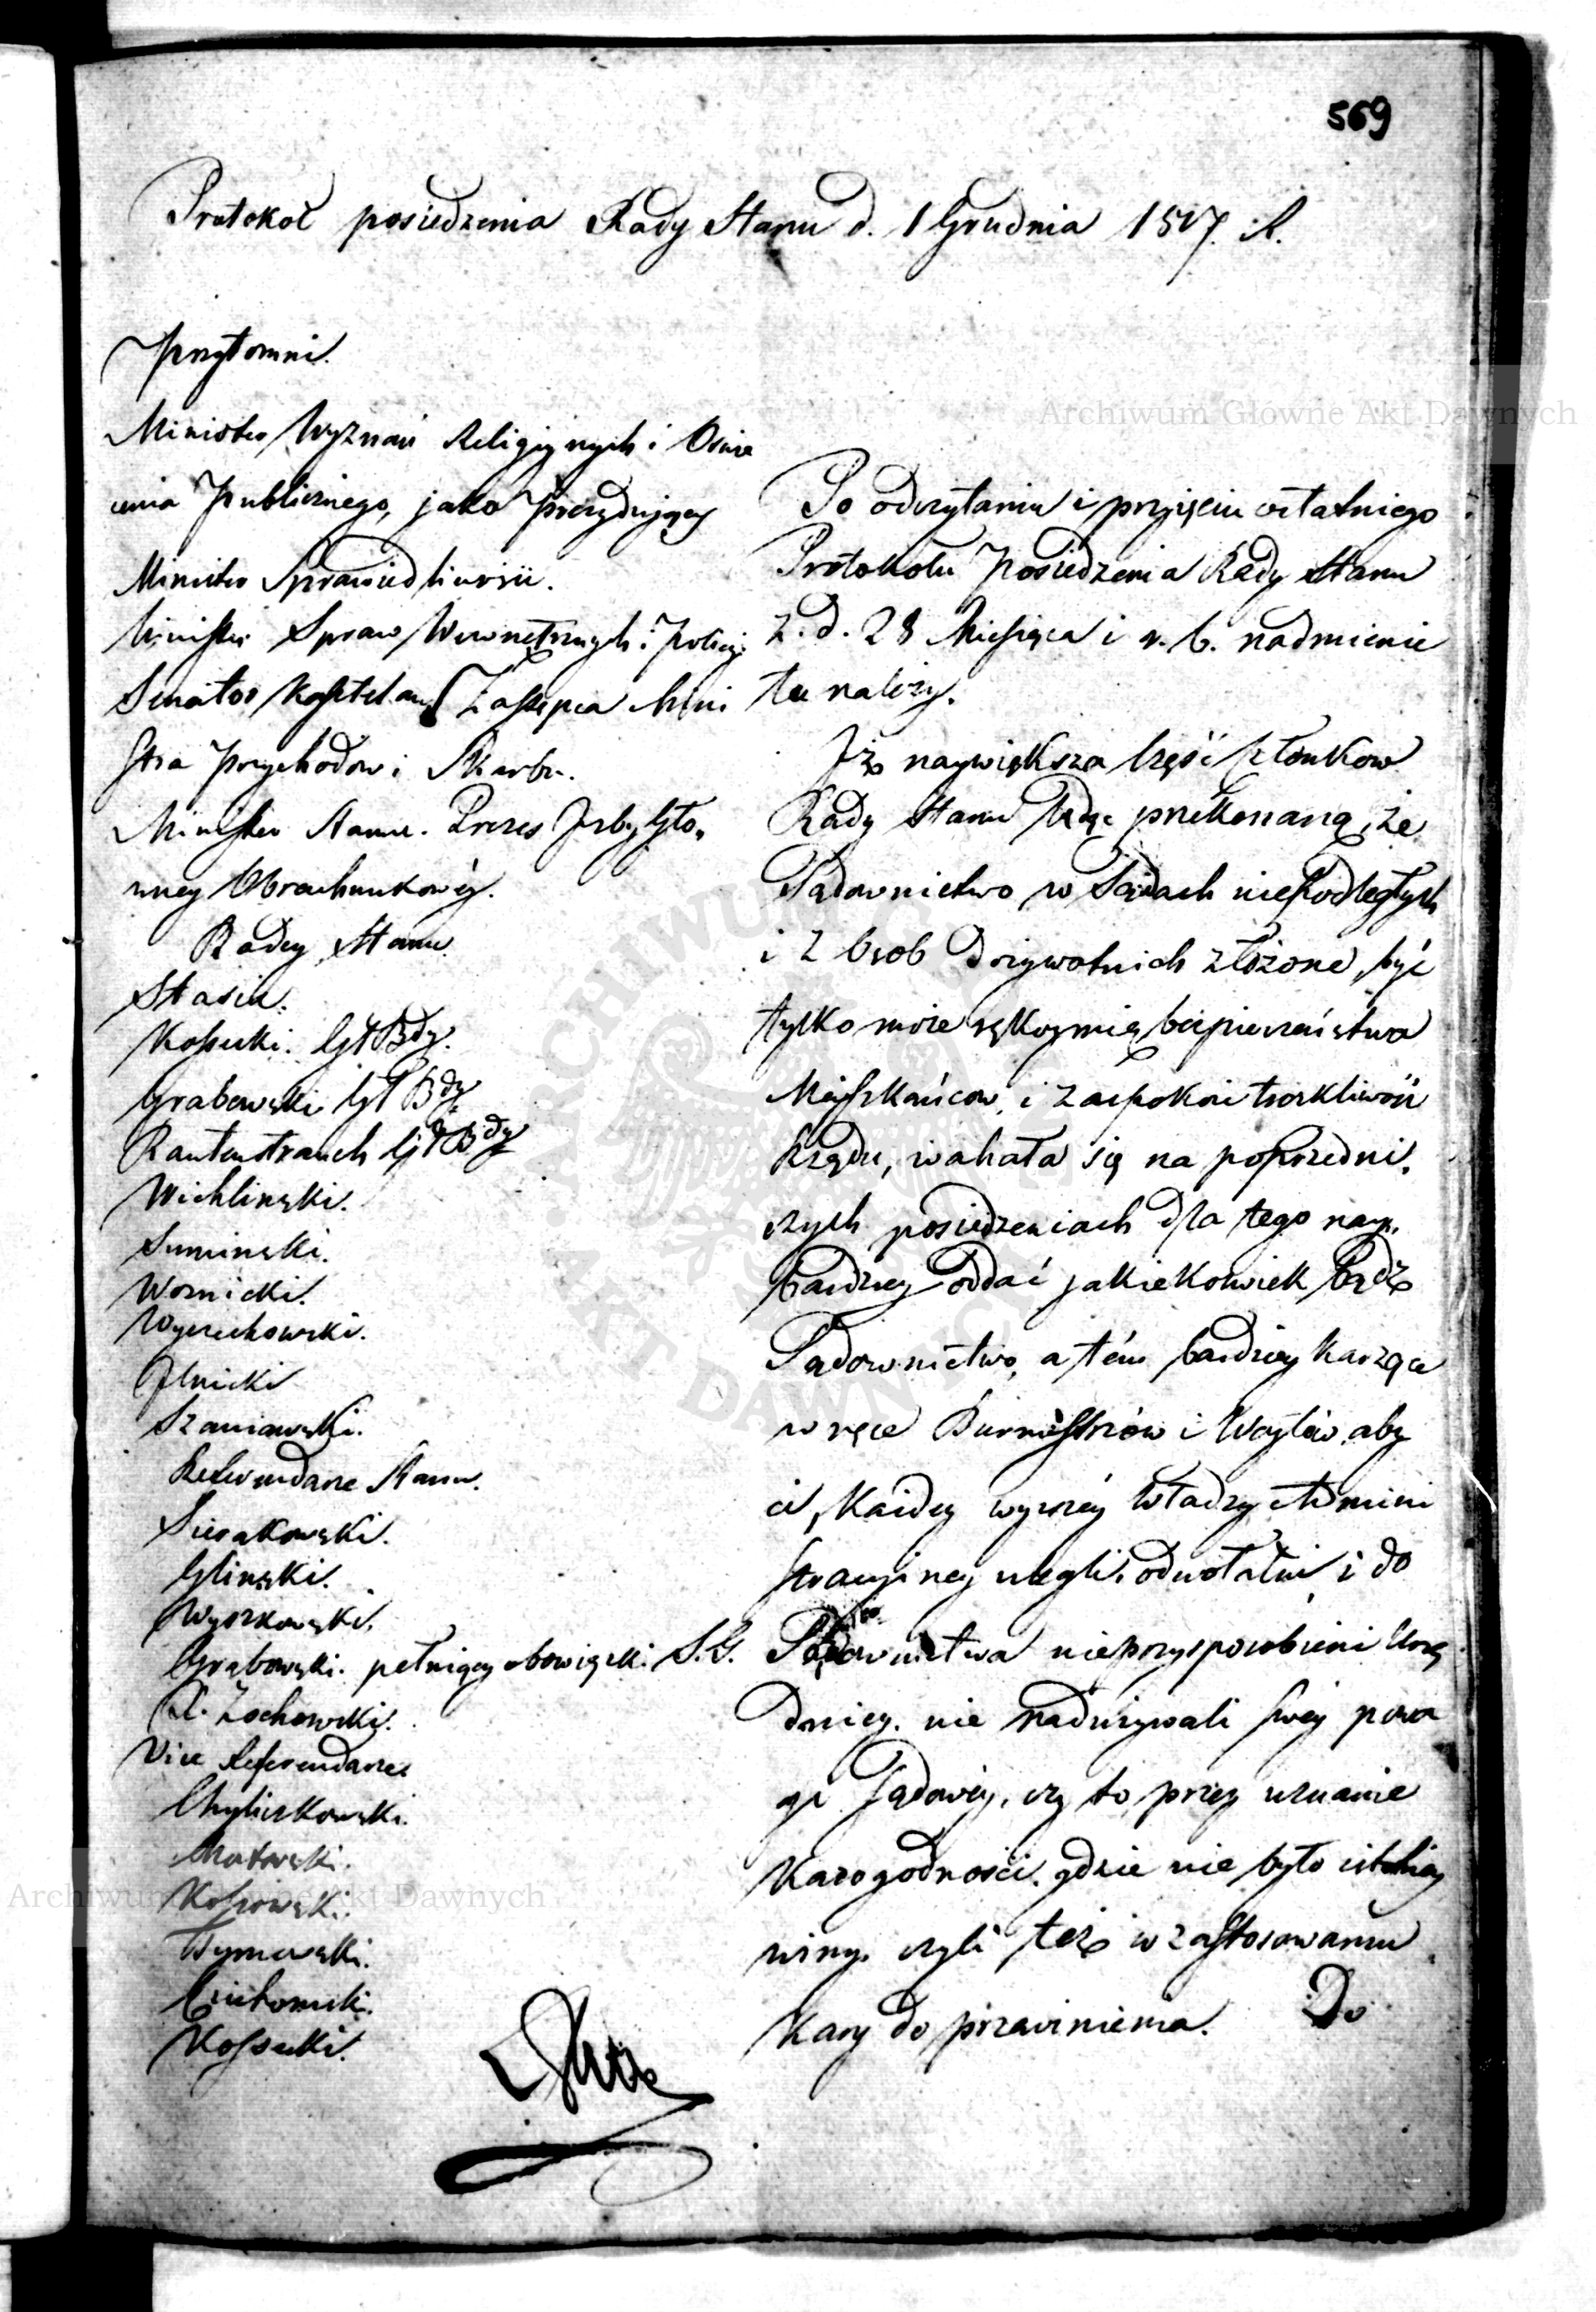 569
Protokoł posiedzenia Rady Stanu d. 1 Grudnia 1817. R.
Przytomni.
Minister Wyznań Religijnych i Oświe
cenia Publicznego, jako Prezydujący
Minister Sprawiedliwości.
Minister Spraw Wewnętrznych i Policyi
Senator Kasztelan Zastępca Mini
stra Przychodow i Skarbu.
Minister Stanu. Prezes Izby Głó„
wney Obrachunkowéy.
Radcy Stanu
Staszic.
Kossecki. Gł Bdy.
Grabowski Gł Bdy.
Rautenstrauch Gł Bdy
Wichliński.
Sumiński.
Woznicki.
Wyczechowski.
Ilnicki
Szaniawski.
Referendarze Stanu.
Sierakowski.
Gliński.
Wyszkowski.
Grabowski. pełniący obowiązki. S. G.
X. Zochowski.
Vice Referendarze
Chyliczkowski.
Kossowski.
Tymowski.
Ciechomski.
Kossecki.
Po odczytaniu i przyięciu ostatniego
Protokołu Posiedzenia Rady Stanu
z. d. 28 Miesiąca i r. b. nadmienie
tu należy.
Iż naywiększa część Członkow
Rady Stanu będąc przekonaną, że
Sądownictwo w Sądach niepodległych
i z Osob dożywotnich złożone, być
tylko może rękoymią bezpieczeństwa
Mieszkańcow, i zaspokoi troskliwość
Rządu, wahała się na poprzedni„
czych posiedzeniach dla tego nay„
bardziey oddać jakiekolwiek bądź
Sądownictwo, a tém bardziey karzące
w ręce Burmistrzów i Woytów, aby
ci, każdey wyższéy władzy Admini
stracyiney ulegli, odwołalni i do
Sądownictwa nieprzysposobieni Urzę
dnicy, nie nadużywali swéy powa
gi Sądowéy, czy to przez uznanie
Karogodności, gdzie nie było istotney
winy, czyli też w zastosowaniu
Kary do przewinienia.
Do
Archiwum Główne Akt Dawnych
Archiwum Główne Akt Dawnych
ARCHIWUM GŁÓWNE AKT DAWNYCH